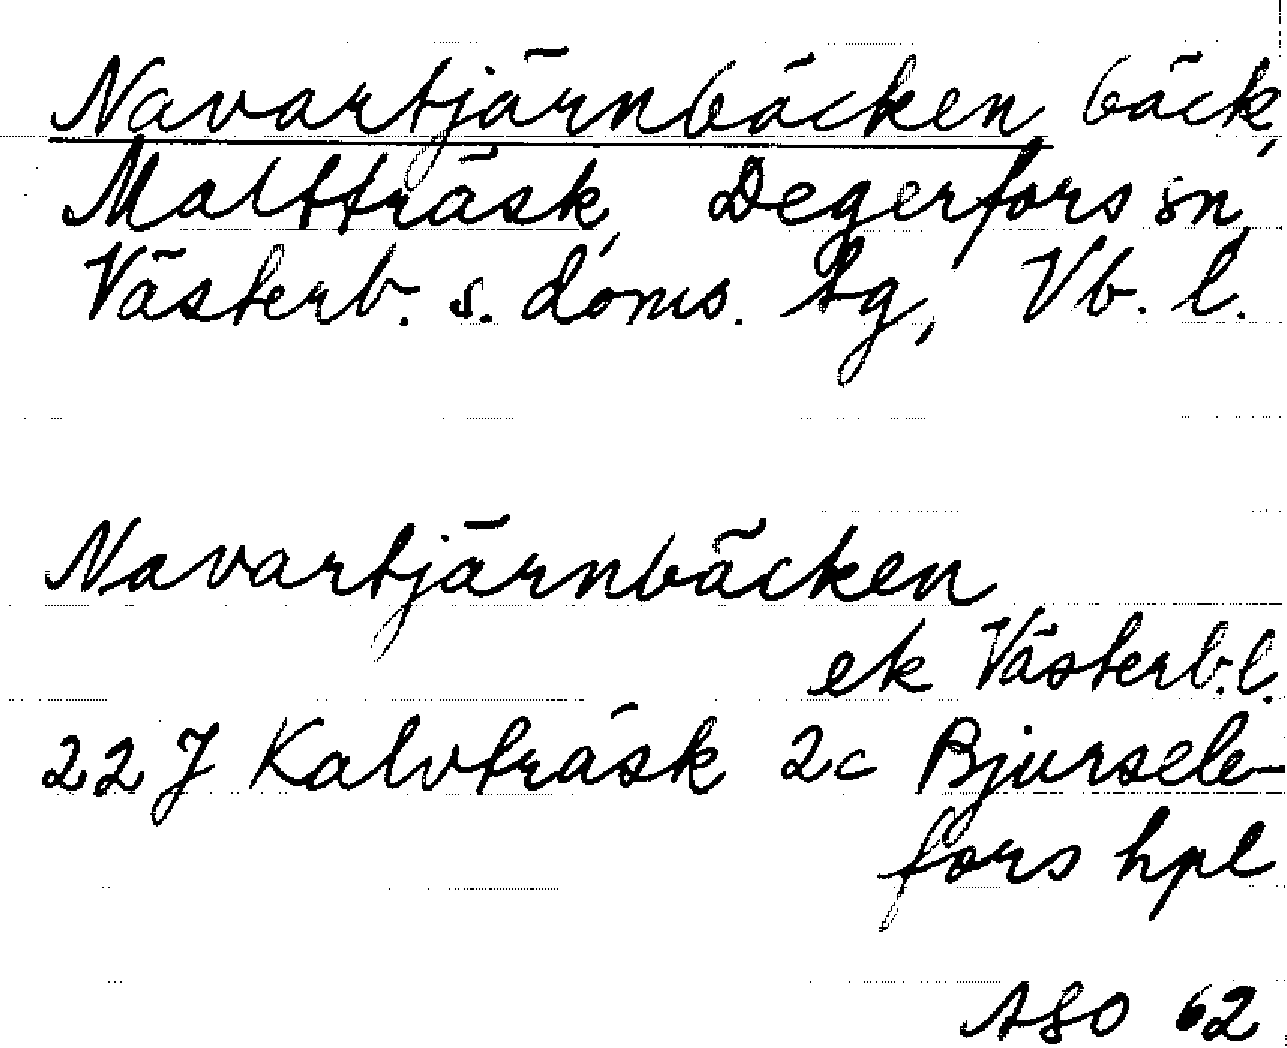 Navartjärnbäcken bäck,
Maltträsk, Degerfors sn,
Västerb. s. doms. tg, Vb. l.
Navartjärnbäcken
ek Västerb. l.
22 J Kalvträsk 2c Bjursele-
fors hpl
ASO 62